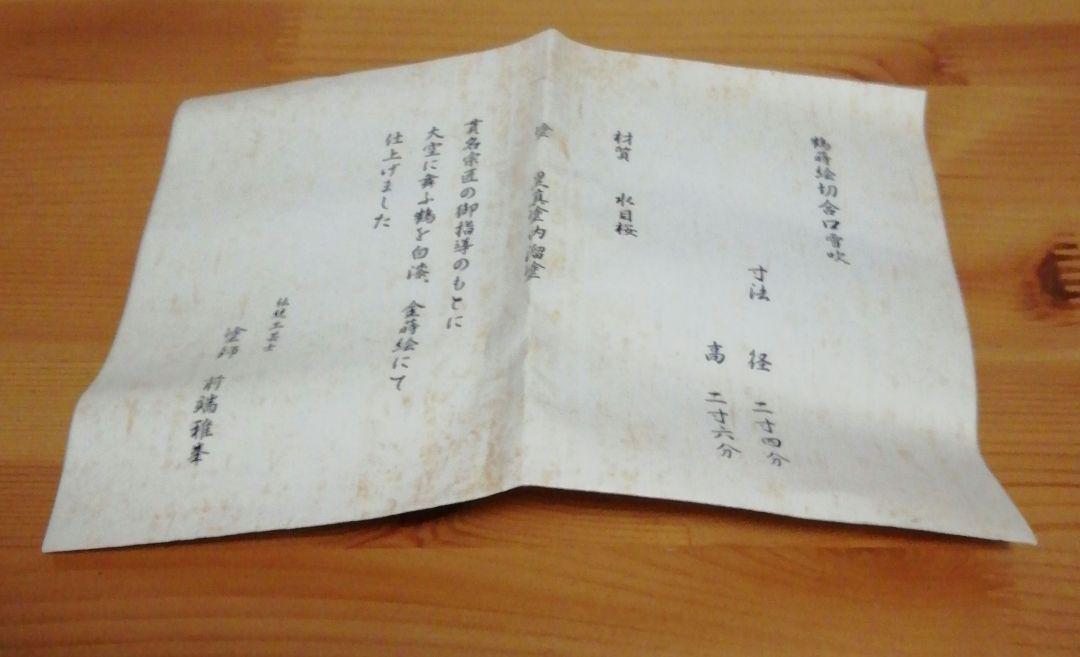 鶴蒔絵切合口雪吹
寸法 径 二寸四分
高 二寸六分
材質 水目桜
塗 真塗内溜塗
貫名宗匠の御指導のもとに
大空に舞ふ鶴を白漆、金蒔絵にて
仕上げました
伝統工芸士
塗師 前端雅峯